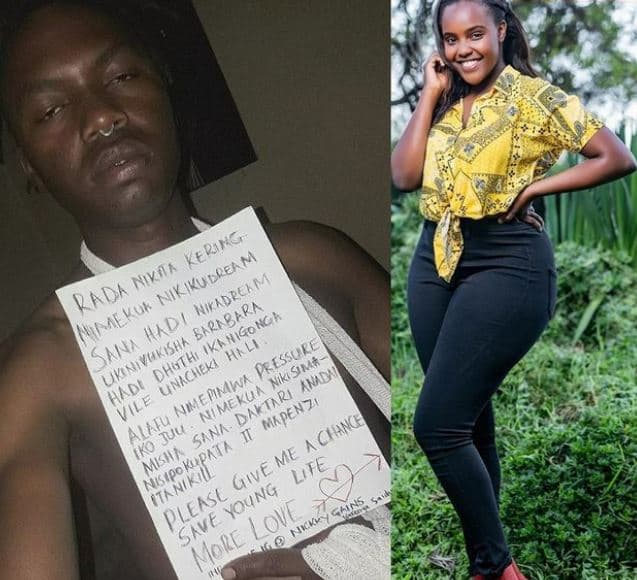 RADA NIKITA KERING.
NIMEKUA NIKIKUDREAM
SANA HADI NIKADREAM
UKINIVUKISHA BARABARA
HADI DHGTHI IKANIGONGA
VILE UNACHEKI HALI.
ALAFU NIMEPIMWA PRESSURE
IKO JUU. NIMEKUA NIKISIMA-
MISHA SANA. DAKTARI ANADAI
NISIPOKUPATA II MAPENZI
ITANIKILL
PLEASE GIVE ME A CHANCE
SAVE YOUNG LIFE
MORE LOVE
IG @ NICKKY GAINS